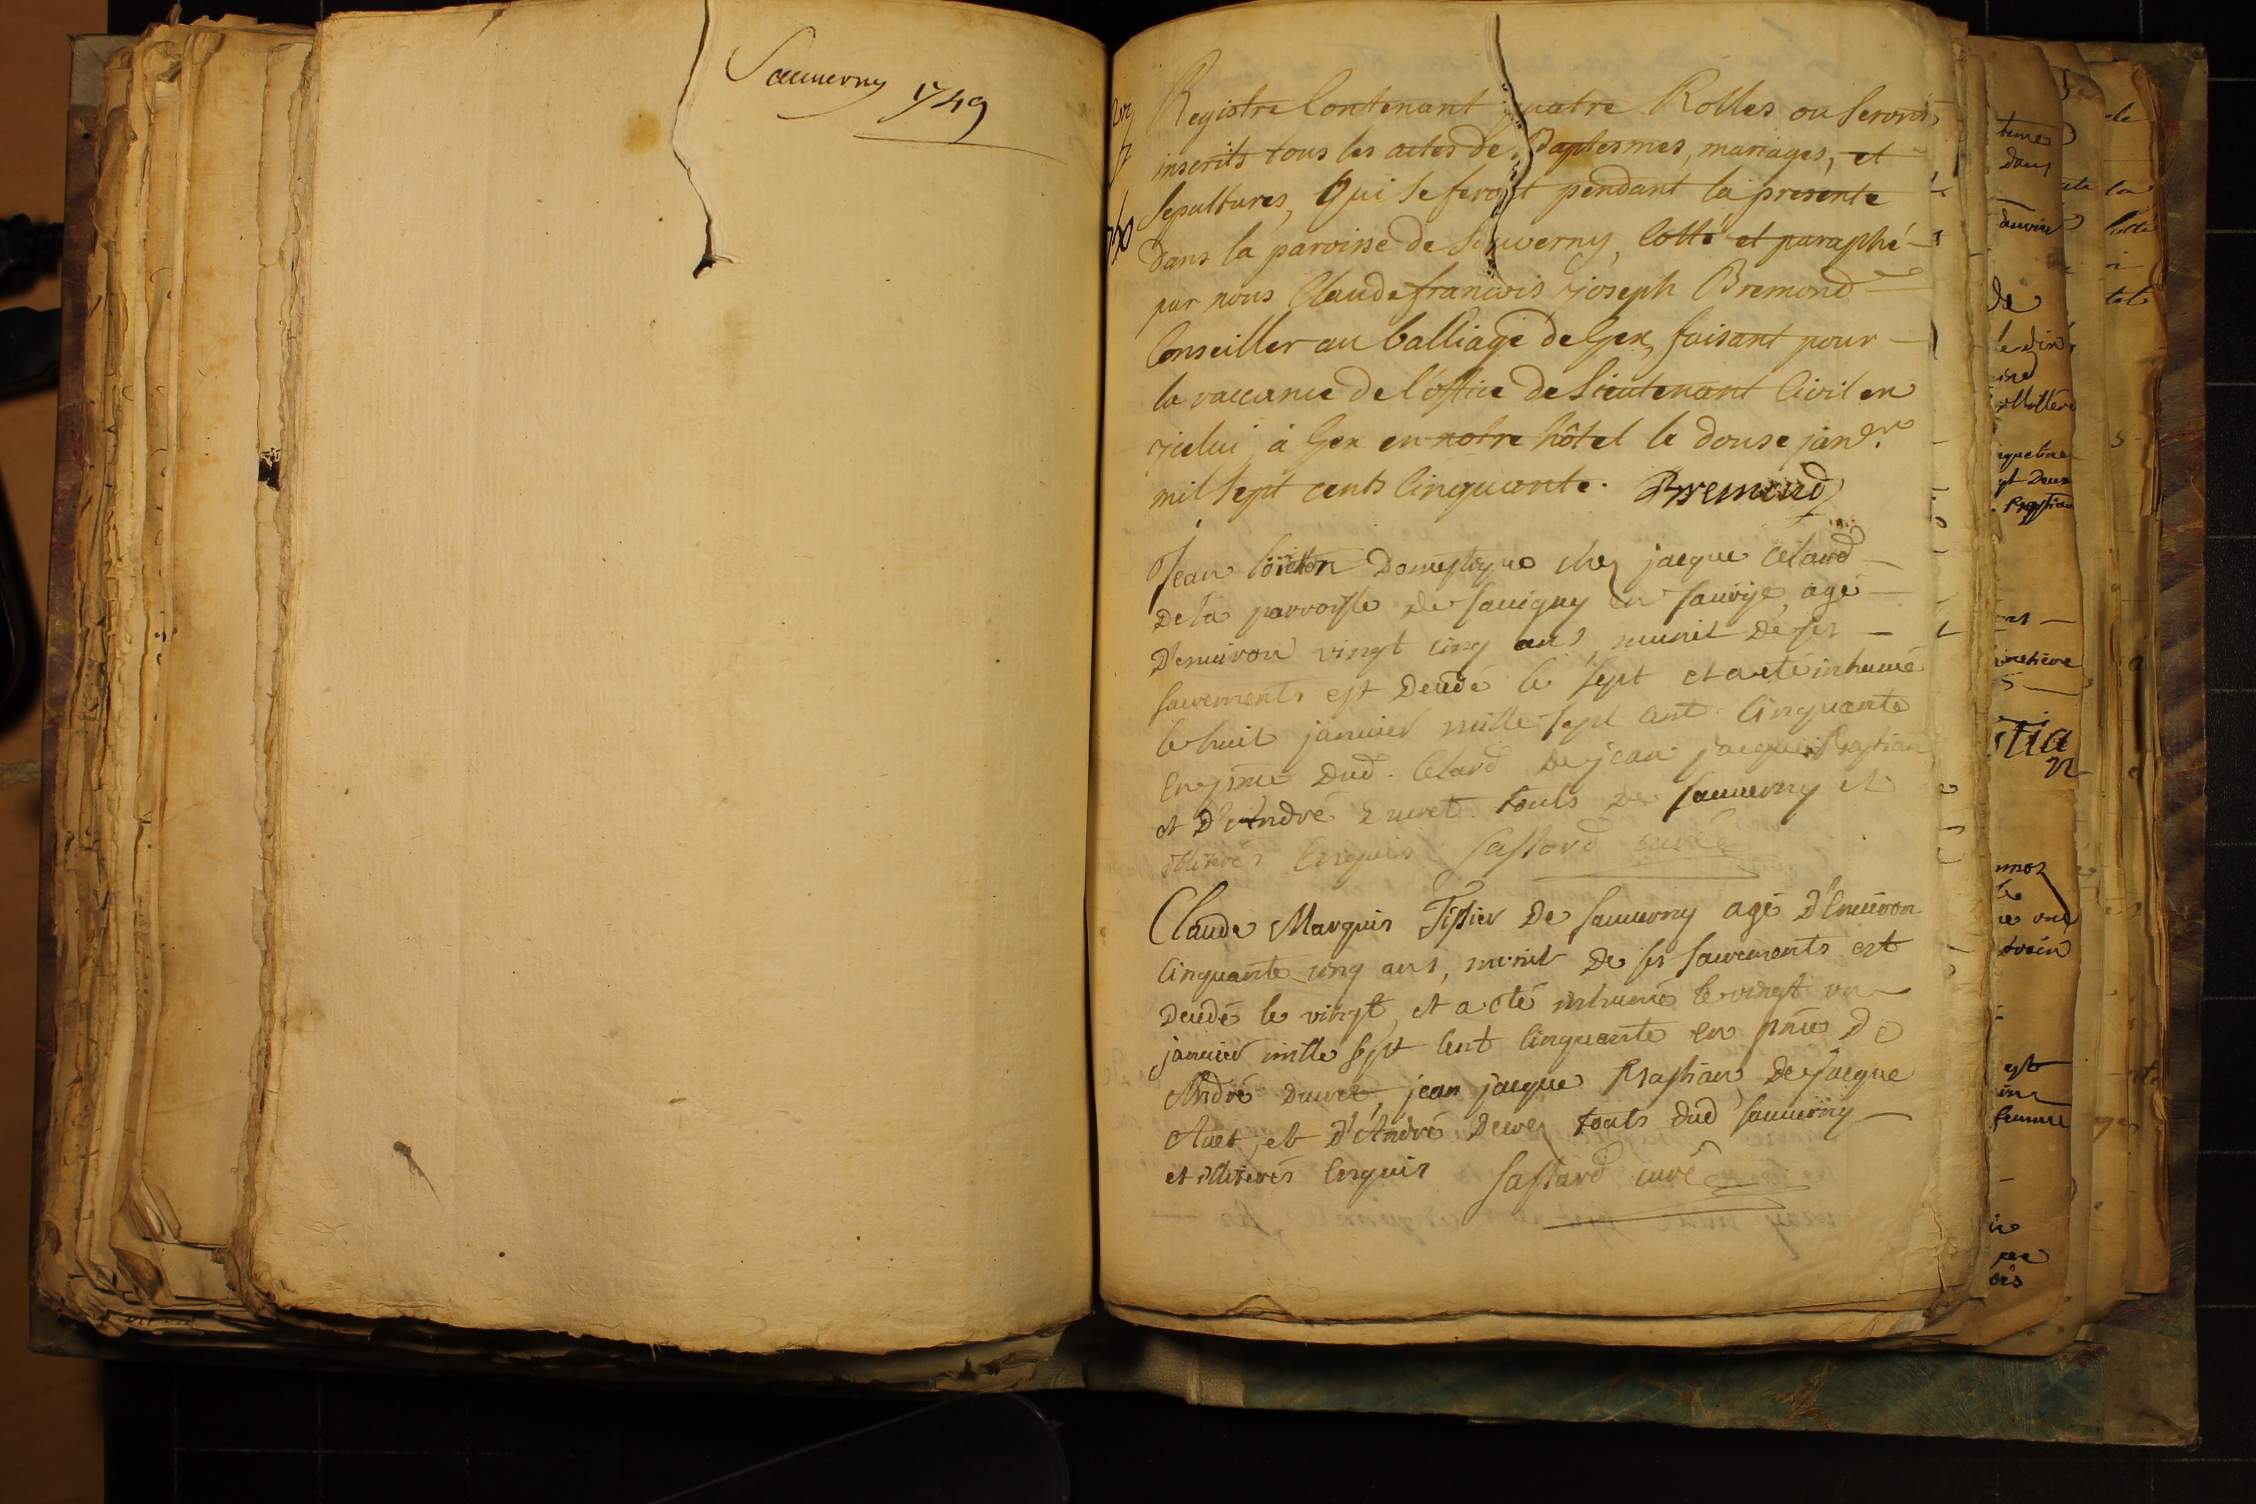 Sauverny 1749
Registre Contenant quatre Rolles ou seront
inscrits tous les actes de Baptesmes, mariages, et
sepultures, Qui se feront pendant la presente
dans la paroisse de Sauverny, Cotté et paraphé
par nous Claude francois joseph Bremond
Conseiller au balliage de Gex, faisant pour
la vaccance de l'office de Lieutenant Civil en
icelui, à Gex en notre hôtel le douse janer.
mil sept cents Cinquante. Bremond
Jean domestique chez jacque Celard
De la parroisse de sauigny en sauoye, agé
D'enuiron vingt cinq ans, munit de ses
sacrements est Decedé le sept et a eté inhumé
le huit januier mille sept cent Cinquante
En pnce dud. Celard de jean jacque
et D'André Duret touts de sauuerny et
illiterés Enquis sassard curé
Claude Marquis Tissier De sauuerny agé D'Enuiron
Cinquante cinq ans, munit De ses sacrements est
Decedé le vingt, et a eté inhumé le vingt un
januier mille sept Cent Cinquante en pnce De
André Duret, jean jacque De jacque
et D'André touts dud sauuerny
et illiterés Enquis sassard curé